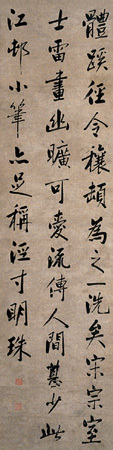 體蹊徑令穰頳為之一洗矣宋宗室
士雷畫幽曠可愛流傳人間甚少此
江邨小筆亦足稱渥寸明珠